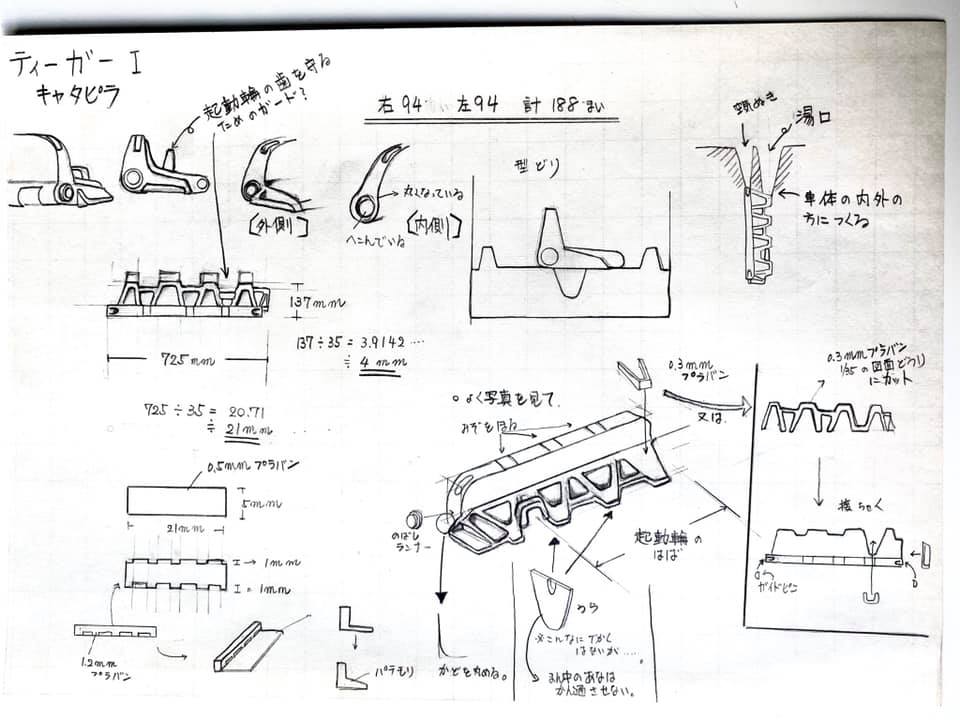 ティーガー I
キャタピラ
起動輪の歯を守る
ためのガード?
右94まい 左94 計 188まい
[外側]
丸くなっている
へこんでいる
[内側]
型どり
空気ぬき
湯口
単体の内外の
方につくる
137mm
725mm
137÷35=3.9142....
≒ 4mm
725÷35=20.71
≒ 21mm
0.5mmプラバン
5mm
21mm
1mm
=1mm
1.2mm
プラバン
パテモリ
○よく写真を見て.
みぞをほる
0.3mm
プラバン
又は.
のばし
ランナー
起動輪の
はば
かどを丸める。
うら
※こんなにでかく
はないが.....。
まん中のあなは
かん通させない。
0.3mmプラバン
1/35の図面どうり
にカット
接ちゃく
ガイドピン